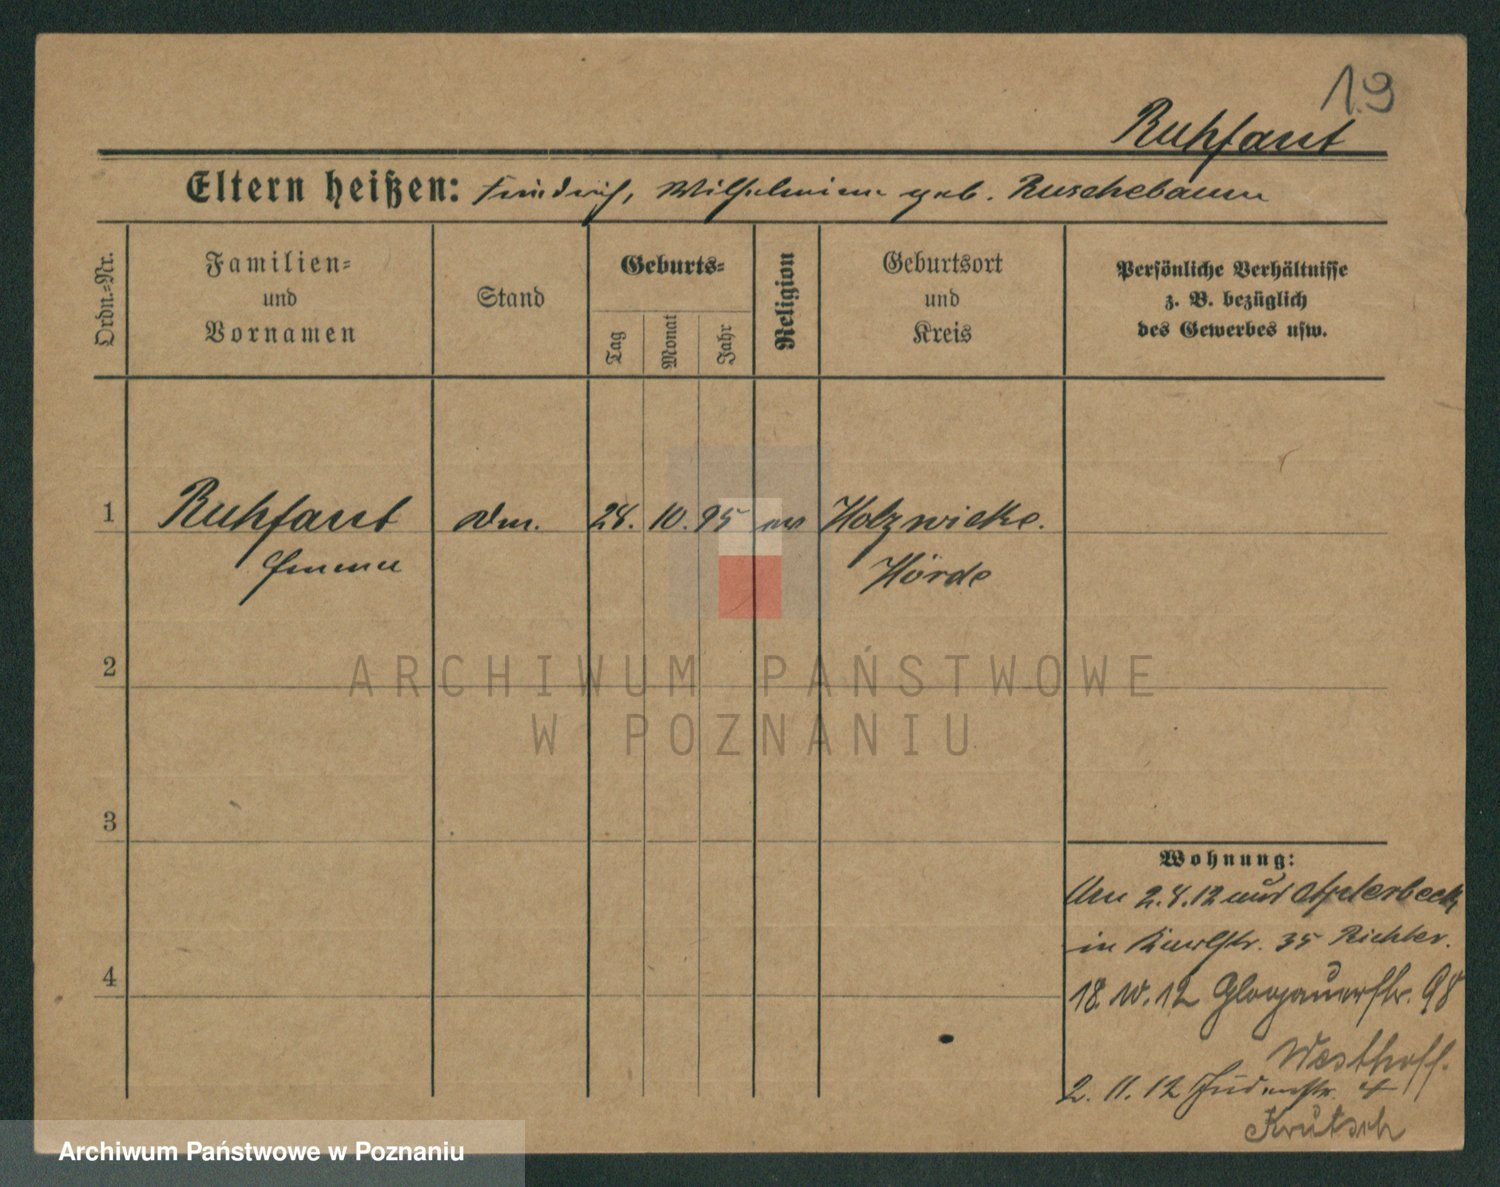 19
Ruhfaut
Eltern heißen: Friedrich, Wilhelmine geb. Ruschebaum
Ordn.-Nr.
Familien-
und
Vornamen
Stand
Geburts-
Tag
Monat
Jahr
Religion
Geburtsort
und
Kreis
Persönliche Verhältnisse
z. B. bezüglich
des Gewerbes usw.
1 Ruhfaut 10. 95 ev Holzwicke.
Emma Hörde
2
3
4
ARCHIWUM PAŃSTWOWE
W POZNANIU
Wohnung:
Am 2.4.12 aus Aplerbeck
in Karlstr. 35 Richter.
18. 10. 12 Glogauerstr. 98
Westhoff.
2. 11. 12 Judenstr. 4
Krutsch
Archiwum Państwowe w Poznaniu